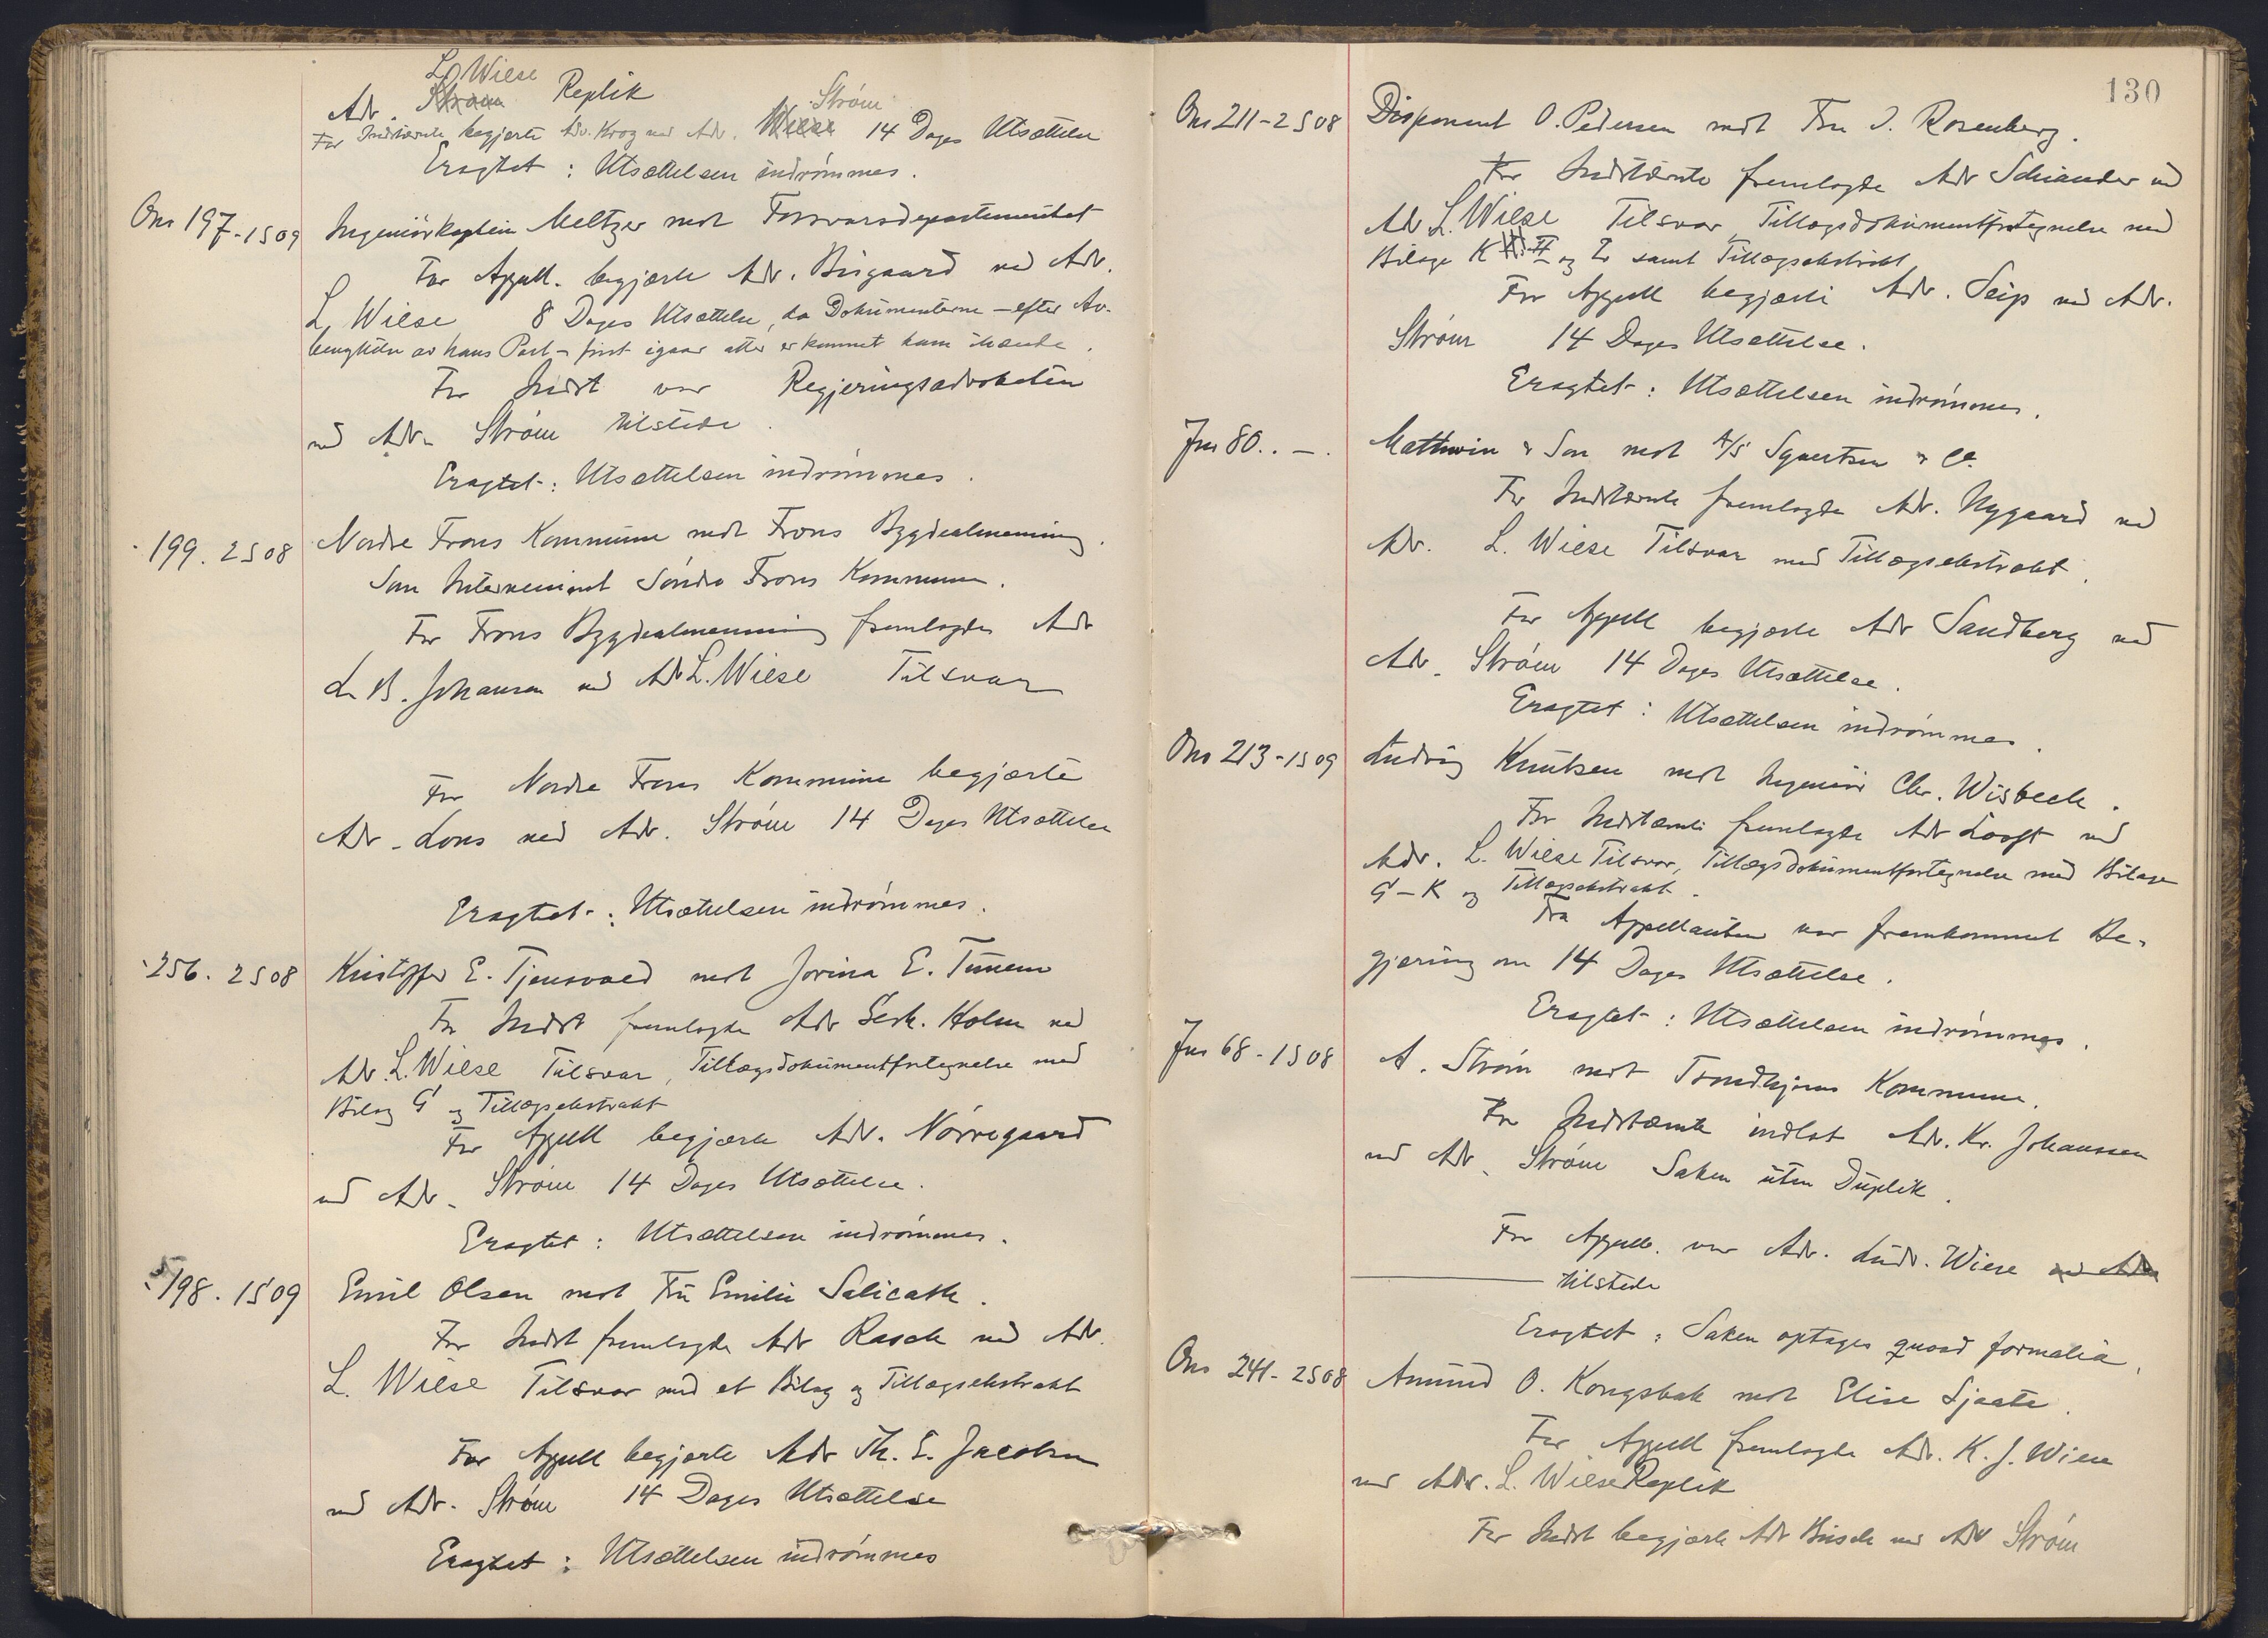 L. Wiese
Adv. Strøm Replik
Strøm
For Indstævnte begjærte Adv. Krog ved Adv. Wiese 14 Dages Utsættelse
Eragtet: Utsættelsen indrømmes.
Ons 197-1S09 Ingeniørkaptein Meltzer mot Forsvarsdepartementet
For Appell. begjærte Adv. Bisgaard ved Adv.
L. Wiese 8 Dages Utsættelse, da Dokumenterne – efter Av-
benyttelse av hans Part – først igaar atter er kommet ham ihænde.
For Indst var Regjeringsadvokaten
ved Adv. Strøm tilstede.
Eragtet: Utsættelsen indrømmes.
199. 2S08 Nordre Frons Kommune mot Frons Bygdealmenning.
Som Intervenient Søndre Frons Kommune.
For Frons Bygdealmenning fremlagdes Adv
L. B. Johansen ved Adv L. Wiese Tilsvar
For Nordre Frons Kommune begjærte
Adv. Lous ved Adv. Strøm 14 Dages Utsættelse
Eragtet: Utsættelsen indrømmes.
256. 2S08 Kristoffer E. Tjensvold mot Jorina E. Tunem
For Indst fremlagde Adv Holm ved
Adv. L. Wiese Tilsvar, Tillægsdokumentfortegnelse med
Bilag G og Tillægsekstrakt
For Appell begjærte Adv. Nørregaard
ved Adv. Strøm 14 Dages Utsættelse.
Eragtet: Utsættelsen indrømmes.
198. 1S09 Emil Olsen mot Fru Emilie Salicath.
For Indst fremlagde Adv Rasch ved Adv.
L. Wiese Tilsvar med et Bilag og Tillægsekstrakt
For Appell begjærte Adv Th. E. Jacobsen
ved Adv. Strøm 14 Dages Utsættelse
Eragtet: Utsættelsen indrømmes
130
Ons 211-2S08 Disponent O. Pedersen mot Fru I. Rosenberg.
For Indstævnte fremlagde Adv Schiander ved
Adv L. Wiese Tilsvar, Tillægsdokumentfortegnelse med
Bilage K og L samt Tillægsekstrakt
For Appell begjærte Adv. Seip ved Adv.
Strøm 14 Dages Utsættelse.
Eragtet: Utsættelsen indrømmes.
Jus 80. . – . Mathwin & Son mot A/S Syvertsen & Co.
For Indstævnte fremlagde Adv. Nygaard ved
Adv. L. Wiese Tilsvar med Tillægsekstrakt.
For Appell begjærte Adv Sandberg ved
Adv. Strøm 14 Dages Utsættelse.
Eragtet: Utsættelsen indrømmes.
Ons 213-1S09 Ludvig Knutsen mot Ingeniør Chr. Wisbech.
For Indstævnte fremlagde Adv Looft ved
Adv. L. Wiese Tilsvar, Tillægsdokumentfortegnelse med Bilage
G – K og Tillægsekstrakt.
Fra Appellanten var fremkommet Be-
gjæring om 14 Dages Utsættelse.
Eragtet: Utsættelsen indrømmes.
Jus 68-1S08 A. Strøm mot Trondhjems Kommune.
For Indstævnte indlot Adv. Kr. Johanssen
ved Adv. Strøm Saken uten Duplik.
For Appell. var Adv. Ludv. Wiese ved Adv
tilstede
Eragtet: Saken optages quoad formalia.
Ons 241-2S08 Amund O. Kongsbak mot Elise Sjaata.
For Appell fremlagde Adv. K. J. Wiese
ved Adv. L. Wiese Replik
For Indst begjærte Adv Busch ved Adv Strøm